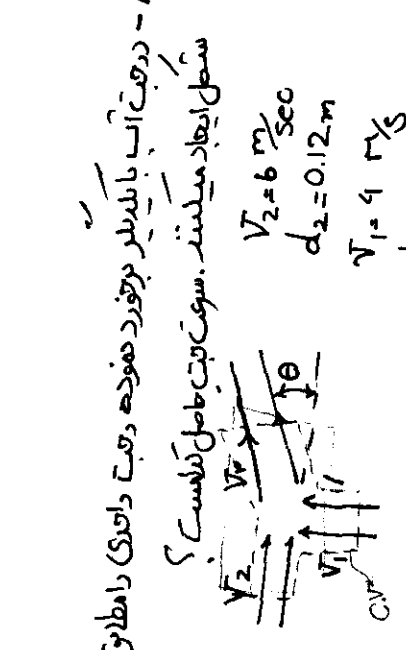 دو جت آب با یکدیگر برخورد نموده و جت واحدی را مطابق
شکل ایجاد میکنند. سرعت جت حاصل کدامست؟
V₂ = 6 m/sec
d₂ = 0.12 m
V₁ = 9 m/s
V₂
Vr
θ
V₁
C.V